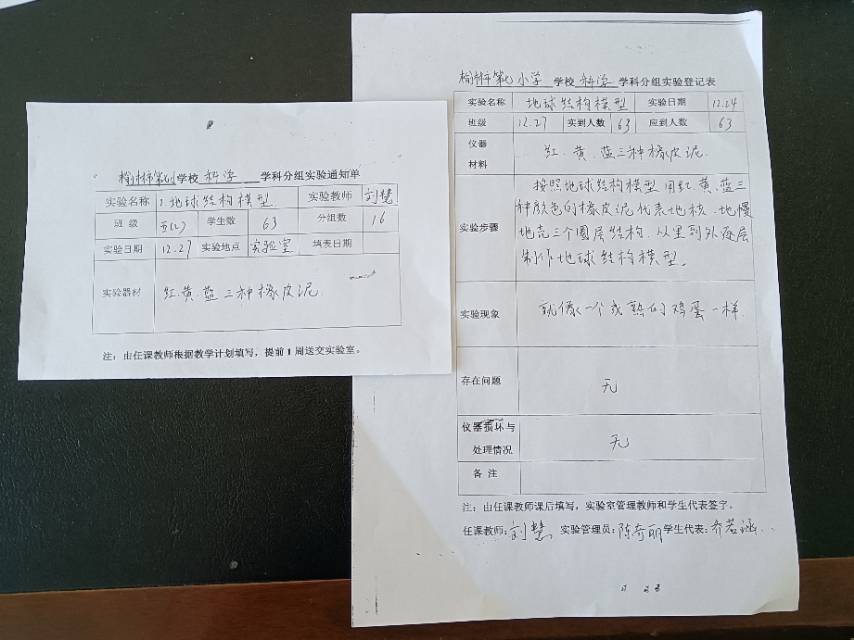 榆林市第七小学 学校 科学 学科分组实验通知单
实验名称 1.地球结构模型 实验教师 刘慧
班 级 五(2) 学生数 63 分组数 16
实验日期 12.27 实验地点 实验室 填表日期
实验器材 红.黄.蓝三种橡皮泥
注：由任课教师根据教学计划填写，提前1周送交实验室。
榆林市第七小学 学校 科学 学科分组实验登记表
实验名称 地球结构模型 实验日期 12.24
班级 12.27 实到人数 63 应到人数 63
仪器
材料
红.黄.蓝三种橡皮泥.
实验步骤
按照地球结构模型用红.黄.蓝三
种颜色的橡皮泥代表地核.地幔
地壳三个圈层结构.从里到外逐层
制作地球结构模型。
实验现象 就像一个成熟的鸡蛋一样.
存在问题 无
仪器损坏与
处理情况
无
备 注
注：由任课教师课后填写，实验室管理教师和学生代表签字。
任课教师：刘慧 实验管理员：陈奇丽 学生代表：乔若涵